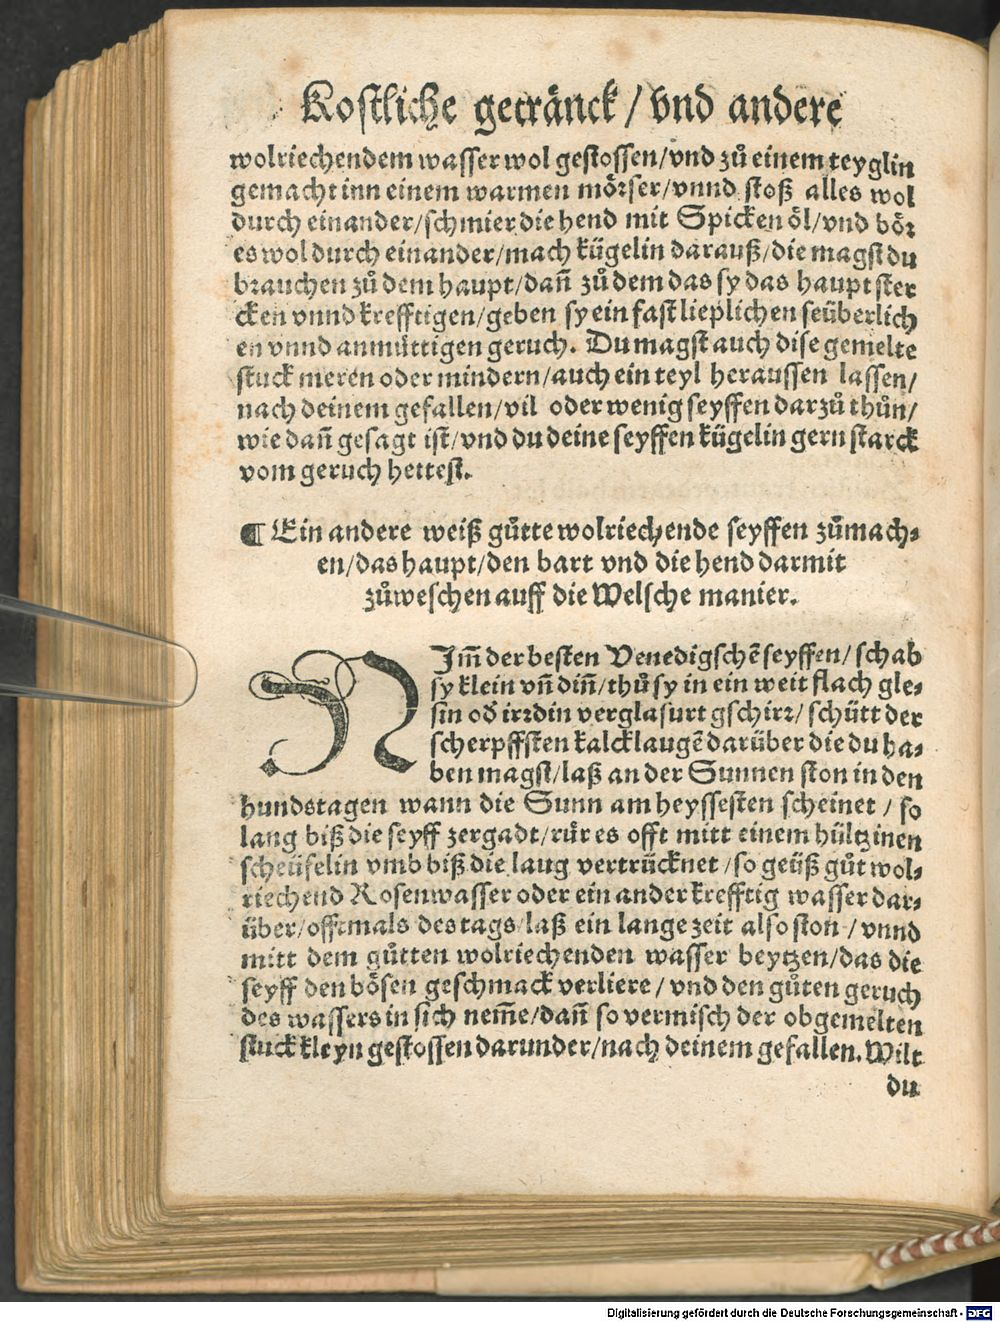 Kostliche getränck / vnd andere
wolriechendem wasser wol gestossen/vnd zů einem teyglin
gemacht inn einem warmen mörser/vnnd stoß alles wol
durch einander/schmier die hend mit Spicken öl/vnd bör
es wol durch einander/mach kügelin darauß/die magst du
brauchen zů dem haupt/dañ zů dem das sy das haupt ster
cken vnnd krefftigen/geben sy ein fast lieplichen seüberlich
en vnnd anmüttigen geruch. Du magst auch dise gemelte
stuck meren oder mindern/auch ein teyl heraussen lassen/
nach deinem gefallen/vil oder wenig seyffen darzů thůn/
wie dañ gesagt ist/vnd du deine seyffen kügelin gern starck
vom geruch hettest.
¶ Ein andere weiß gůtte wolriechende seyffen zůmach-
en/das haupt/den bart vnd die hend darmit
zůweschen auff die Welsche manier.
NJm̃ der besten Venedigschẽ seyffen/ schab
sy klein vñ diñ/thů sy in ein weit flach gle-
sin od irrdin verglasurt gschirr/ schütt der
scherpffsten kalcklaugẽ darüber die du ha-
ben magst/laß an der Sunnen ston in den
hundstagen wann die Sunn am heyssesten scheinet / so
lang biß die seyff zergadt/rür es offt mitt einem hültzinen
scheüfelin vmb biß die laug vertrücknet/so geüß gůt wol-
riechend Rosenwasser oder ein ander krefftig wasser dar-
über/offtmals des tags/laß ein lange zeit also ston / vnnd
mitt dem gůtten wolriechenden wasser beytzen/das die
seyff den bösen geschmack verliere / vnd den gůten geruch
des wassers in sich nem̃e/dañ so vermisch der obgemelten
stuck kleyn gestossen darunder/nach deinem gefallen. Wilt
du
Digitalisierung gefördert durch die Deutsche Forschungsgemeinschaft - DFG